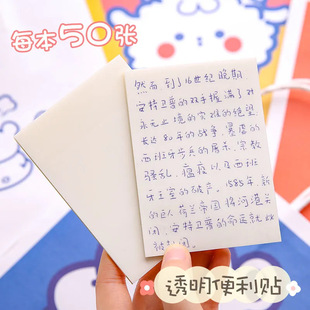 每本50张
然而到了16世纪晚期
安特卫普的双手握满了对
永无止境的灾难的绝望:
长达80年的战争,黑底的
西班牙步兵的屠杀、宗教
骚乱、瘟疫以及西班
牙王室的破产。1585年,新
的巨人荷兰帝国将河道关
闭,安特卫普的命运就
透明便利贴